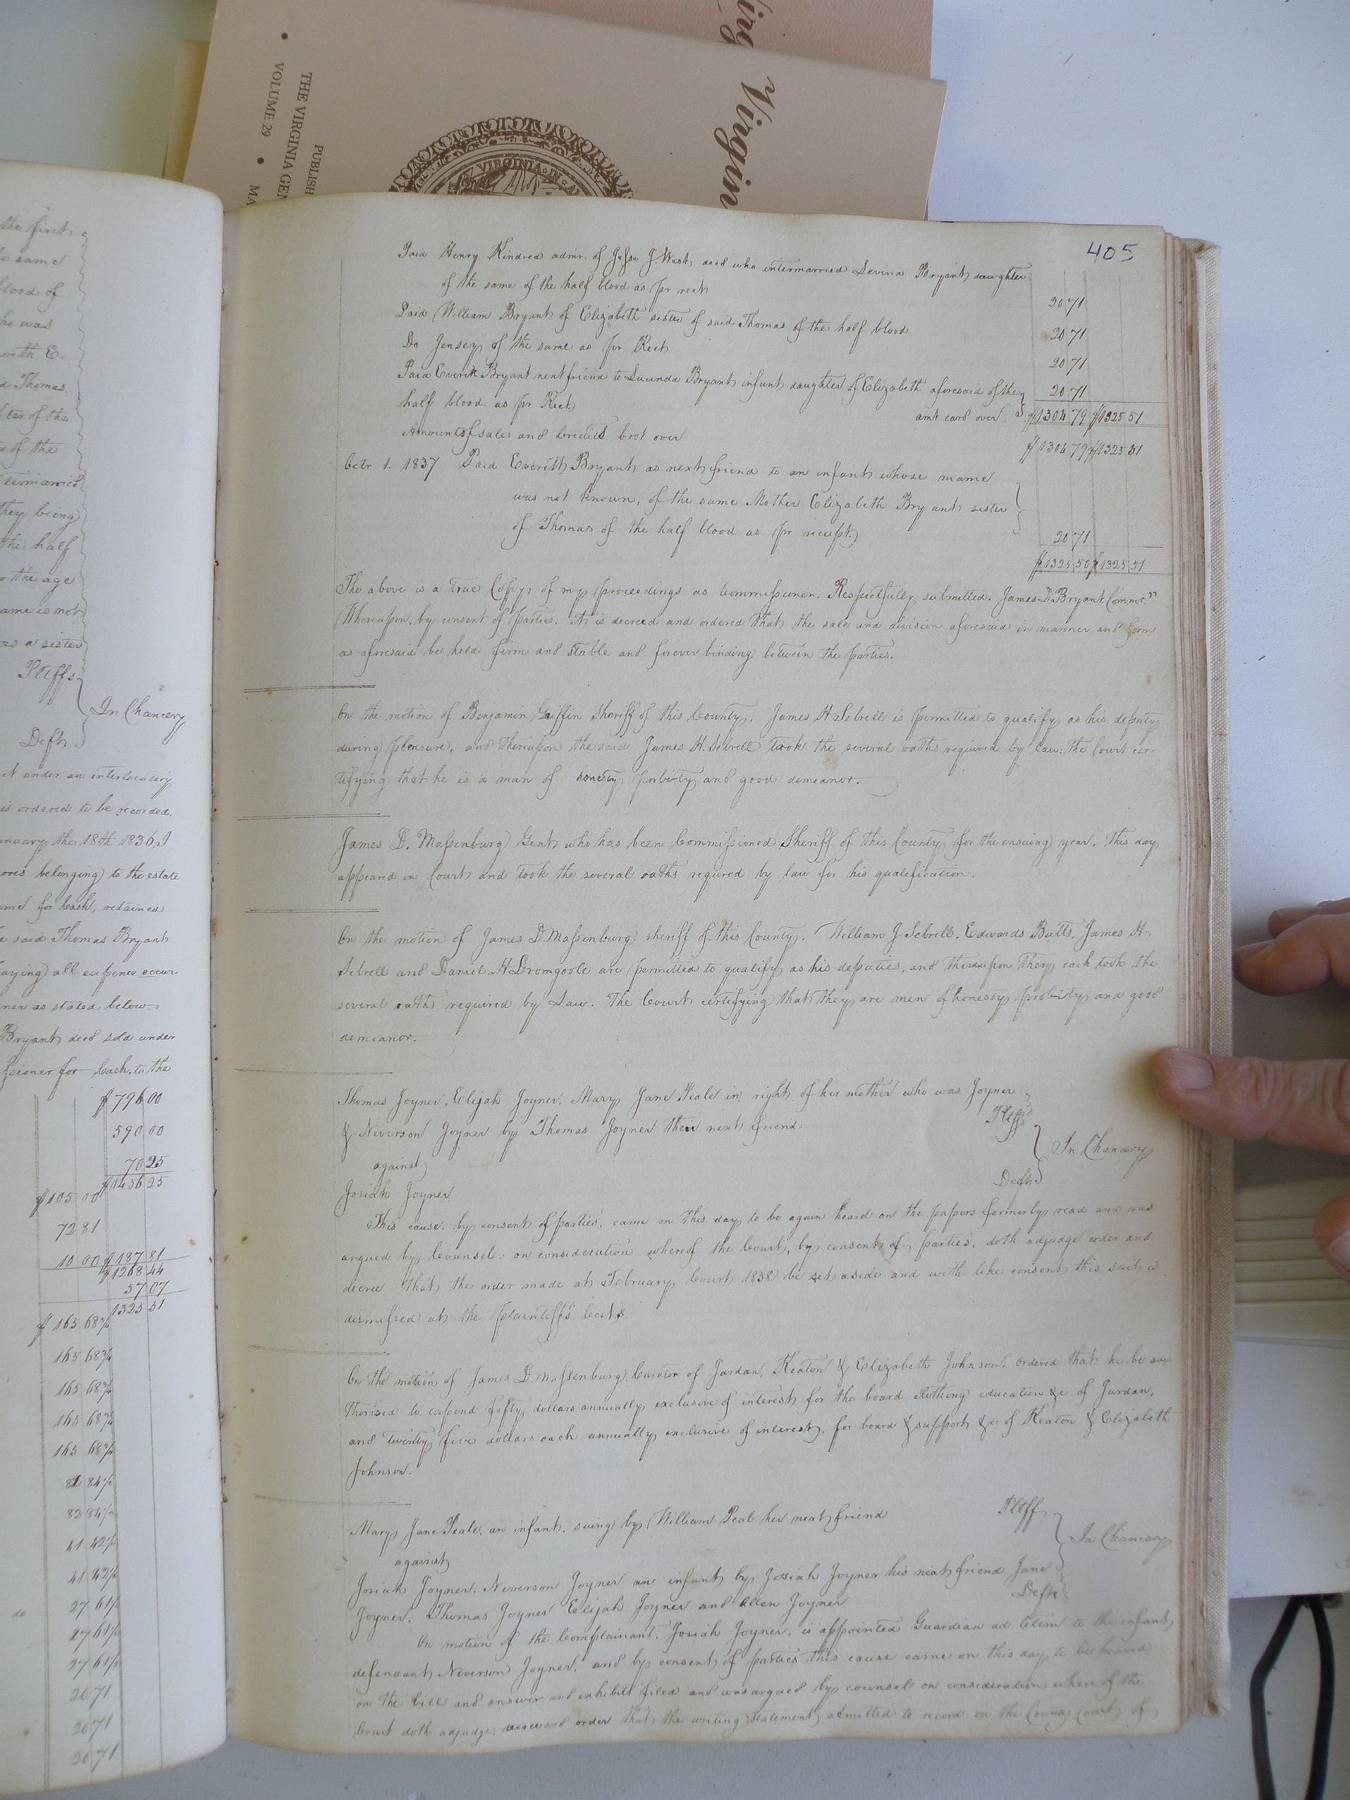 Virgin
PUBLISH
THE VIRGINIA GEN
VOLUME 29 • MA
VIRGINIA
405
Paid Henry Kindred admr. of Jesse J. West, decd who intermarried Levina Bryant daughter
of the same of the half blood as pr rect 20 71
Paid William Bryant of Elizabeth sister of said Thomas of the half blood 20 71
Do Jensey of the same as pr Rect 20 71
Paid Everitt Bryant next friend to Lucinda Bryant infant daughter of Elizabeth aforesaid of the
half blood as pr Rect 20 71
amt card over. $1304 79 $1325 51
Amount of sales and Credits brot over $1304 79 $1325 51
Octr 1. 1837 Paid Everitt Bryant as next friend to an infant whose name
was not known, of the same Mother Elizabeth Bryant sister
of Thomas of the half blood as pr receipt 20 71
$1325 50 $1325 51
The above is a True Copy of my proceedings as Commissioner. Respectfully submitted. James D. Bryant Commr."
Whereupon, by consent of Parties. It is decreed and ordered That the sale and division aforesaid in manner and form
as aforesaid be held firm and stable and forever binding between the parties.
On the motion of Benjamin Griffin Sheriff of this County. James H. Sebrell is permitted to qualify as his deputy
during pleasure, and thereupon the said James H. Sebrell took the several oaths required by law: The Court cer-
tifying that he is a man of honesty probity and good demeanor.
James D. Massenburg Gent who has been Commissioned Sheriff of this County for the ensuing year, This day
appeared in Court and took the several oaths required by law for his qualification.
On the motion of James D. Massenburg sheriff of this County. William J Sebrell, Edwards Butts, James H.
Sebrell and Daniel H. Dromgoole are permitted to qualify as his deputies, and thereupon They each took the
several oaths required by Law. The Court certifying that they are men of honesty probity and good
demeanor.
Thomas Joyner, Elijah Joyner, Mary Jane Peale in right of her mother who was Joyner
& Neverson Joyner by Thomas Joyner their next friend Pltffs
against In Chancery
Josiah Joyner Deft
This cause, by consent of parties, came on This day to be again heard on the papers formerly read and was
argued by Counsel: on consideration whereof the Court, by consent of parties, doth adjudge order and
decree That the order made at February Court 1838 be set aside and with like consent this suit is
dismissed at the plaintiffs costs
On the motion of James D. Massenburg Curator of Jordan, Keaton & Elizabeth Johnson, ordered that he be au-
thorised to expend fifty dollars annually exclusive of interest for the board clothing education &c of Jordan,
and twenty five dollars each annually exclusive of interest, for board & support &c of Keaton & Elizabeth
Johnson.
Mary Jane Peale, an infant, suing by William Peal her next friend Pltff
against In Chancery
Josiah Joyner, Neverson Joyner an infant by Josiah Joyner his next friend Jane
Joyner, Thomas Joyner Elijah Joyner and Allen Joyner Defts
On motion of the Complainant, Josiah Joyner, is appointed Guardian ad litem to the infant
defendant Neverson Joyner, and by consent of parties this cause came on this day to be heard
on the bill and answer and exhibits filed and was argued by counsel on consideration where of the
Court doth adjudge decree and order that the writing Statement admitted to record in the County Court of
the first
same
blood of
he was
with E.
Thomas
ter of the
of the
termarried
They being
the half
the age
ame is not
a sister
Pltffs
In Chancery
Defts
under an interlocutory
is ordered to be recorded.
anuary the 18th 1836, I
belonging to the estate
for Cash, retained
said Thomas Bryant
aying all expence occur-
ner as stated below.
Bryant decd sold under
ssioner for Cash, to the
$796 00
590 00
70 25
$1456 25
$105 00
72 81
10 00 $187 81
$1268 44
57 07
1325 51
$165 68¾
165 68¾
165 68¾
165 68¾
165 68¾
82 84½
82 84½
41 42¼
41 42¼
27 61½
27 61½
27 61½
20 71
20 71
20 71